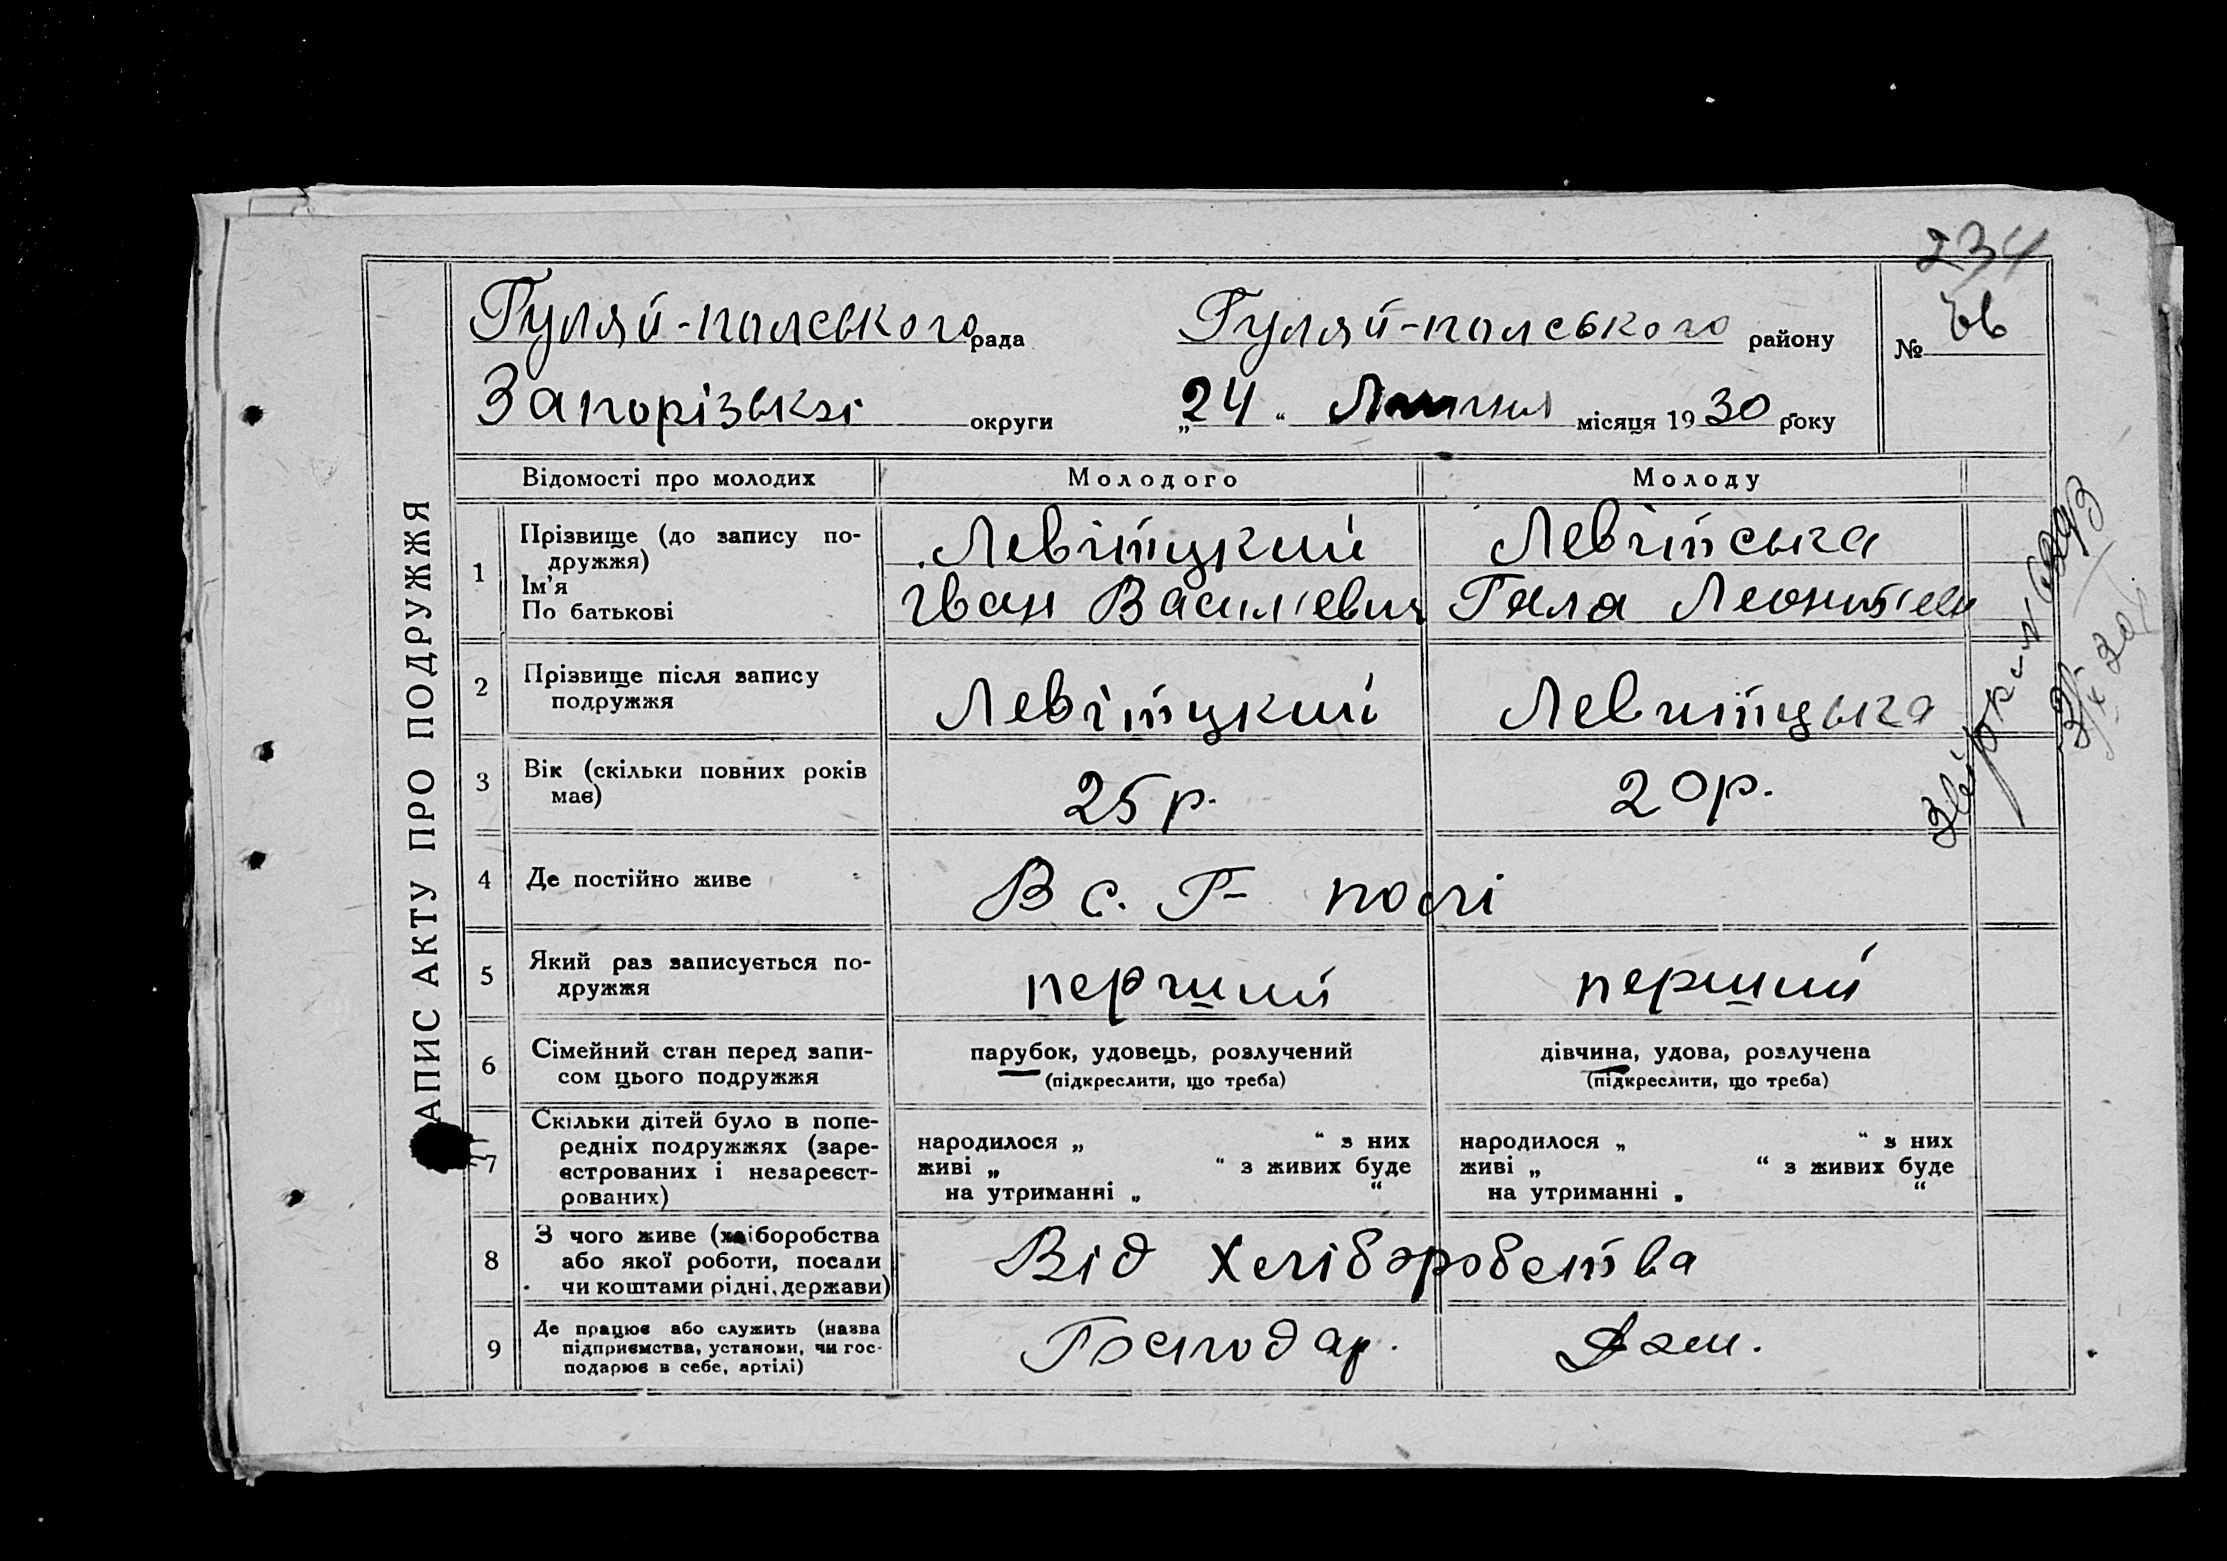 234
Гуляй-полського рада Гуляй-полського району № 66
Запорізькі округи „24“ Липня місяця 1930 року
АПИС АКТУ ПРО ПОДРУЖЖЯ
Відомості про молодих Молодого Молоду
1 Прізвище (до запису по-
дружжя)
Ім'я
По батькові
Левітцкий
Іван Василієвич
Левітська
Гала
2 Прізвище після запису
подружжя
Левітцкий
Левитцька
3 Вік (скільки повних років
має)
25 р.
20 р.
4 Де постійно живе
В с. Г- полі
5 Який раз записується по-
дружжя
перший
перший
6 Сімейний стан перед запи-
сом цього подружжя
парубок, удовець, розлучений
(підкреслити, що треба)
дівчина, удова, розлучена
(підкреслити, що треба)
7 Скільки дітей було в попе-
редніх подружжях (заре-
єстрованих і незареєст-
рованих)
народилося „ “ з них
живі „ “ з живих буде
на утриманні „ “
народилося „ “ з них
живі „ “ з живих буде
на утриманні „ “
8 З чого живе (хліборобства
або якої роботи, посади
чи коштами рідні, держави)
Від хліборобства
9 Де працює або служить (назва
підприємства, установи, чи гос-
подарює в себе, артілі)
Господар.
Дом.